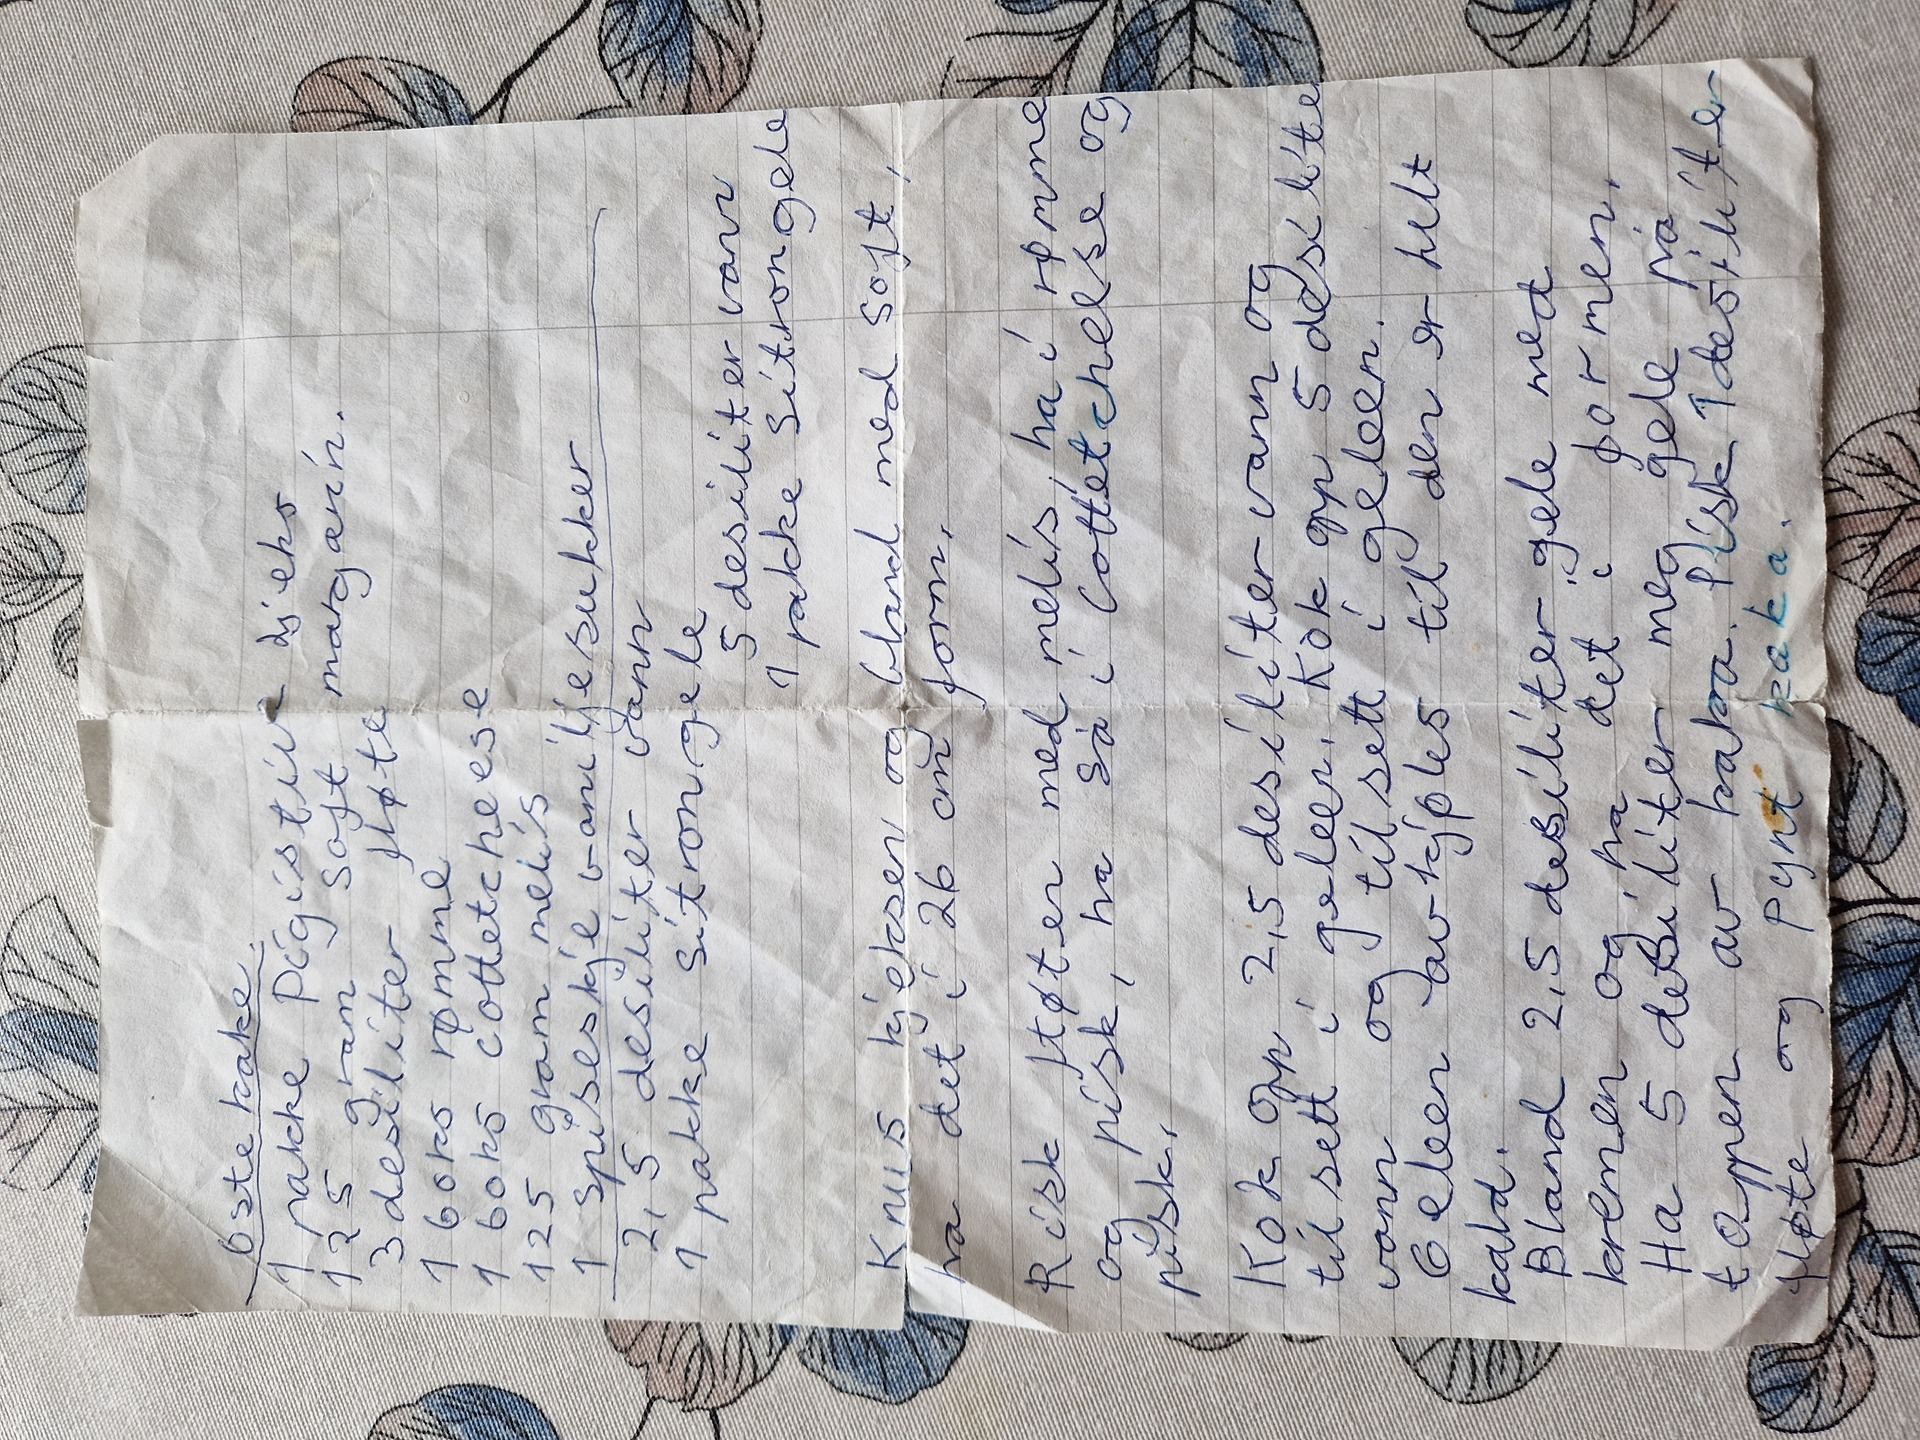 Ostekake.
1 pakke Digistiv kjeks
125 gram soft margarin.
3 desiliter fløte
1 boks rømme
1 boks cottetcheese
125 gram melis
1 spiseskje vaniljesukker
2,5 desiliter vann
1 pakke sitrongele
5 desiliter vann
1 pakke sitrongele
Knus kjeksen og bland med soft,
ha det i 26 cm form.
Pisk fløten med melis, ha i rømme
og pisk, ha så i Cottetcheese og
pisk.
Kok opp 2,5 desiliter vann og
tilsett i geleen. Kok opp 5 desiliter
vann og tilsett i geleen.
Geleen avkjøles til den er helt
kald.
Bland 2,5 desiliter gele med
kremen og ha det i formen.
Ha 5 desiliter meg gele på
toppen av kaka. Pisk 1 desiliter
fløte og pynt kaka.